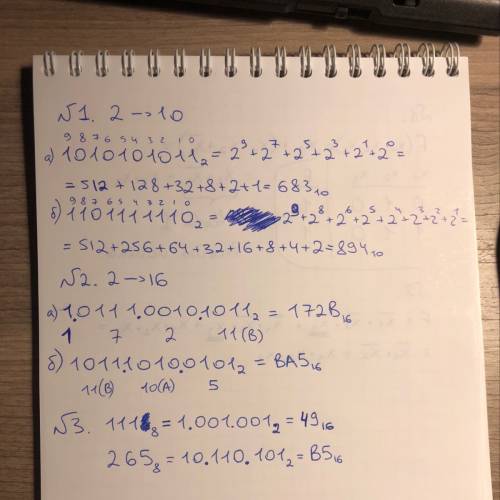 №1. 2 → 10
9 8 7 6 5 4 3 2 1 0
а) 1010101011₂ = 2⁹+2⁷+2⁵+2³+2¹+2⁰=
= 512 + 128+32+8+2+1= 683₁₀
9 8 7 6 5 4 3 2 1 0
б) 1101111110₂ = 2⁹+2⁸+2⁶+2⁵+2⁴+2³+2²+2¹=
= 512+256+64+32+16+8+4+2=894₁₀
№2. 2 → 16
а) 1.0111.0010.1011₂ = 172B₁₆
1 7 2 11(B)
б) 1011.1010.0101₂ = BA5₁₆
11(B) 10(A) 5
№3. 111₈ = 1.001.001₂ = 49₁₆
265₈ = 10.110.101₂ = B5₁₆